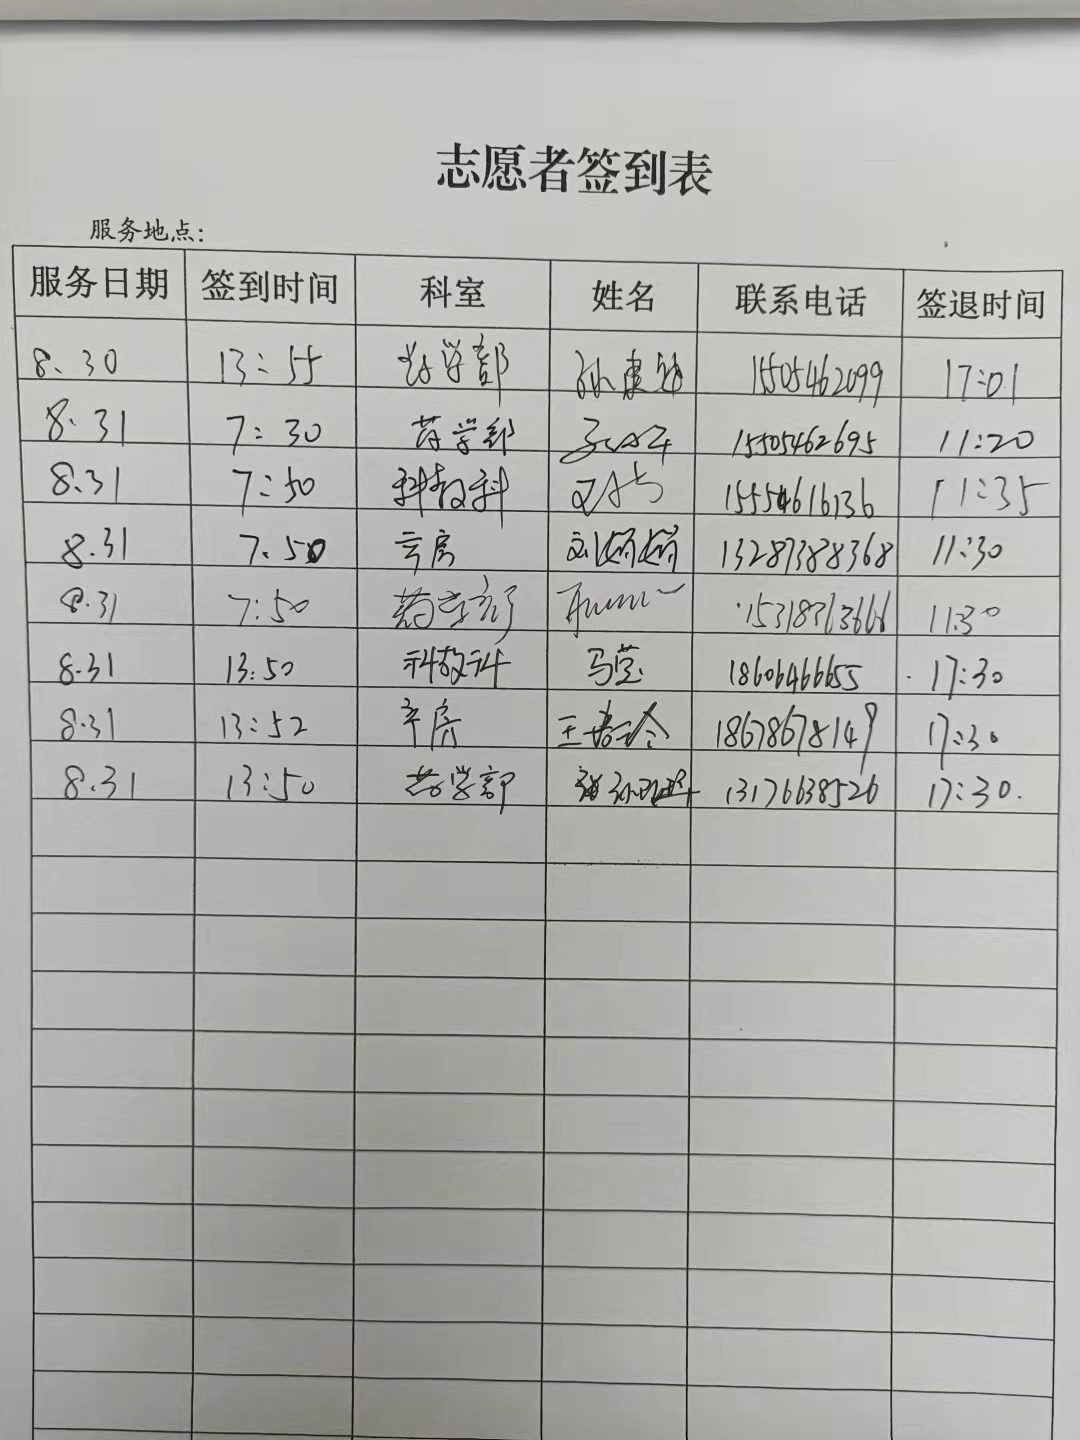 志愿者签到表
服务地点:
服务日期 签到时间 科室 姓名 联系电话 签退时间
8.30 13:55 药学部 1505462099 17:01
8.31 7:30 药学部 15505462695 11:20
8.31 7:50 科教科 15554616136 11:35
8.31 7:50 刘娟娟 13287388368 11:30
8.31 7:50 药学部 15318363666 11:30
8.31 13:50 科教科 马莹 18606466655 17:30
8.31 13:52 18678678149 17:30
8.31 13:50 药学部 13176638526 17:30.